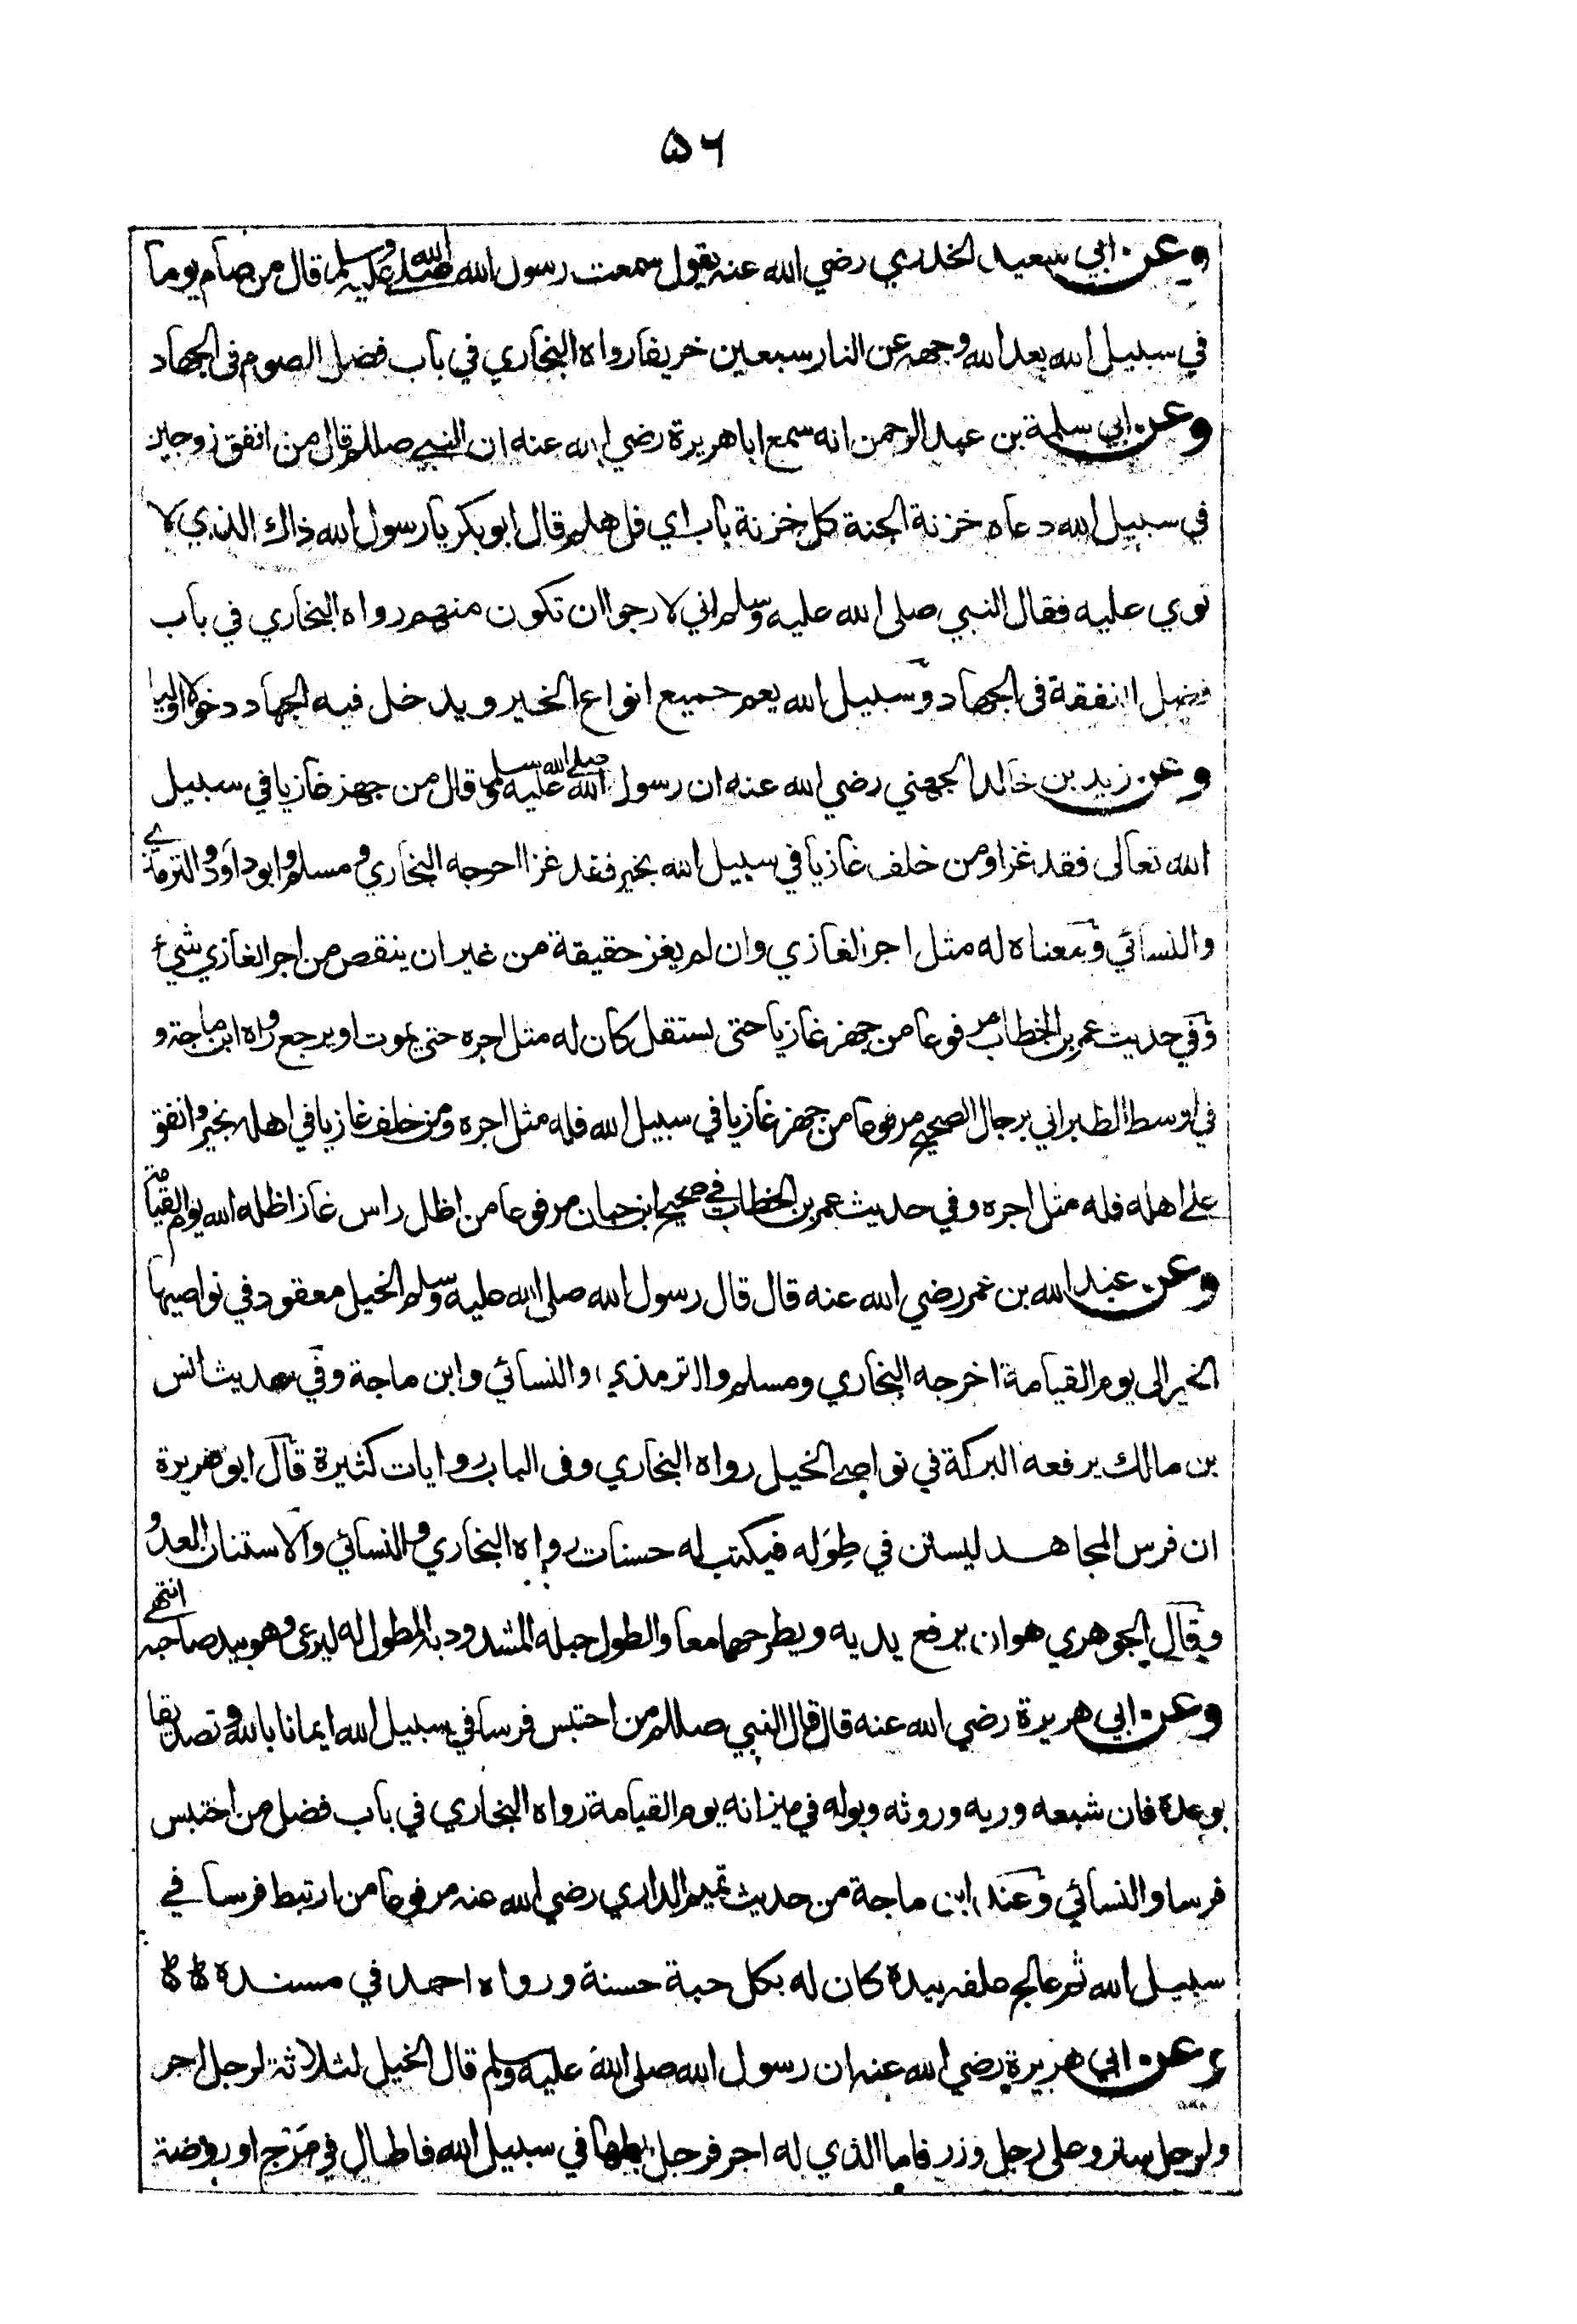 ۵۶
وعن ابي سعيد الخدري رضي الله عنه يقول سمعت رسول الله صلى الله عليه وسلم قال من صام يوما
في سبيل الله بعد الله وجهه عن النار سبعين خريفا رواه البخاري في باب فضل الصوم في الجهاد
وعن ابي سلمة بن عبد الرحمن انه سمع ابا هريرة رضي الله عنه ان النبي صللم قال من انفق زوجين
في سبيل الله دعاه خزنة الجنة كل خزنة باب اي فل هلم قال ابو بكر يا رسول الله ذاك الذي لا
توي عليه فقال النبي صلى الله عليه وسلم اني لارجو ان تكون منهم رواه البخاري في باب
فضل النفقة في الجهاد وسبيل الله يعم جميع انواع الخير ويدخل فيه الجهاد دخولا اوليا
وعن زيد بن خالد الجهني رضي الله عنه ان رسول الله صلى الله عليه وسلم قال من جهز غازيا في سبيل
الله تعالى فقد غزا ومن خلف غازيا في سبيل الله بخير فقد غزا اخرجه البخاري ومسلم وابو داود والترمذي
والنسائي ومعناه له مثل اجر الغازي وان لم يغز حقيقة من غير ان ينقص من اجر الغازي شيء
وفي حديث عمر بن الخطاب مرفوعا من جهز غازيا حتى يستقل كان له مثل اجره حتى يموت او يرجع رواه ابن ماجة و
في اوسط الطبراني برجال الصحيح مرفوعا من جهز غازيا في سبيل الله فله مثل اجره ومن خلف غازيا في اهله بخير وانفق
على اهله فله مثل اجره وفي حديث عمر بن الخطاب في صحيح ابن حبان مرفوعا من اظل راس غاز اظله الله يوم القيامة
وعن عبد الله بن عمر رضي الله عنه قال قال رسول الله صلى الله عليه وسلم الخيل معقود في نواصيها
الخير الى يوم القيامة اخرجه البخاري ومسلم والترمذي والنسائي وابن ماجة وفي حديث انس
بن مالك يرفعه البركة في نواصي الخيل رواه البخاري وفي الباب روايات كثيرة قال ابو هريرة
ان فرس المجاهد ليستن في طِوَله فيكتب له حسنات رواه البخاري والنسائي والاستنان العدو
وقال الجوهري هو ان يرفع يديه ويطرحهما معا والطول حبله المشدود به المطول له ليرعى وهو بيد صاحبه انتهى
وعن ابي هريرة رضي الله عنه قال قال النبي صللم من احتبس فرسا في سبيل الله ايمانا بالله وتصديقا
بوعده فان شبعه وريه وروثه وبوله في ميزانه يوم القيامة رواه البخاري في باب فضل من احتبس
فرسا والنسائي وعند ابن ماجة من حديث تميم الداري رضي الله عنه مرفوعا من ارتبط فرسا في
سبيل الله ثم عالج علفه بيده كان له بكل حبة حسنة ورواه احمد في مسنده
وعن ابي هريرة رضي الله عنه ان رسول الله صلى الله عليه وسلم قال الخيل لثلاثة لرجل اجر
ولرجل ستر وعلى رجل وزر فاما الذي له اجر فرجل ربطها في سبيل الله فاطال في مَرْج او روضة